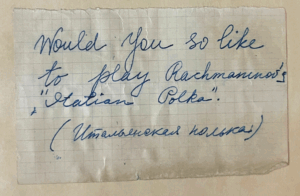 Would you so like
to play Rachmaninov's
„Italian Polka".
(Итальянская полька)